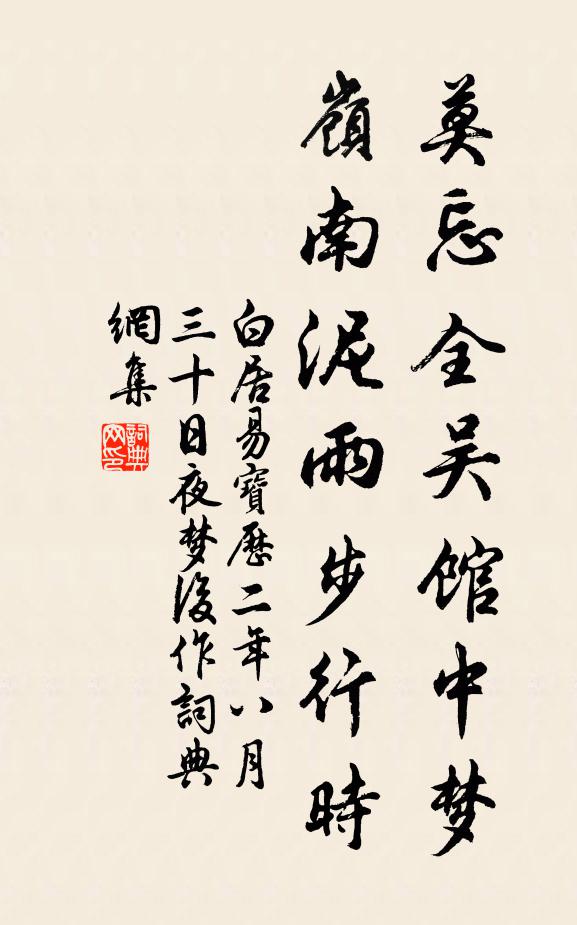 莫忘全吴馆中梦
嶺南泥雨步行時
白居易寶歷二年八月
三十日夜梦後作詞典
網集
詞典
网印